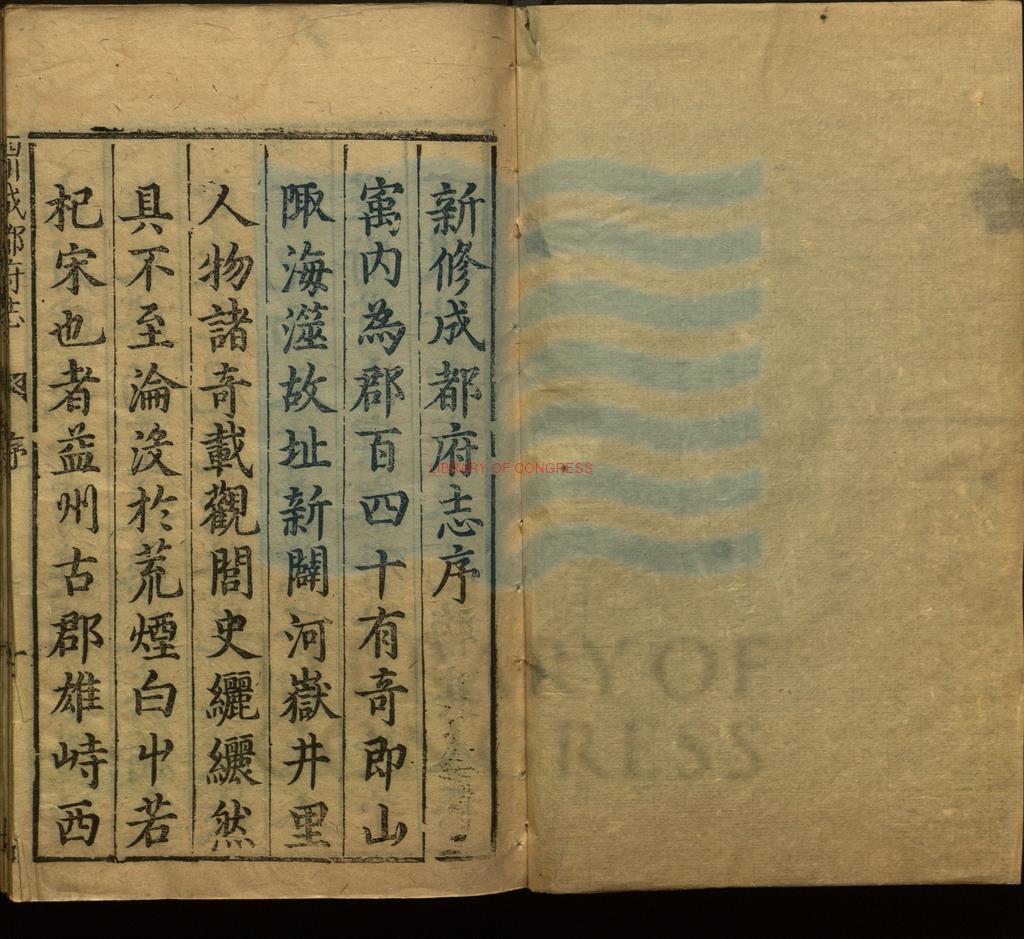 新修成都府志序
寓内為郡百四十有奇即山
陬海澨故址新闢河嶽井里
人物諸奇載觀閭史纚纚然
具不至淪没於荒煙白屮若
杞宋也者益州古郡雄峙西
四川成都府志
序
LIBRARY OF CONGRESS